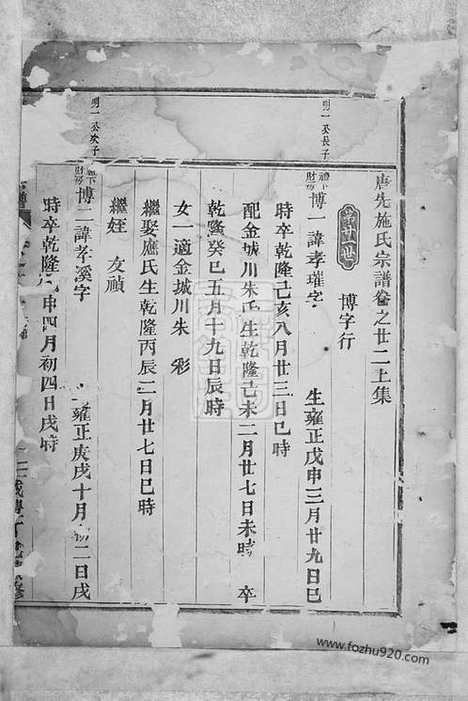 唐先施氏宗譜卷之廿二上集
世 博字行
明一公長子
博一諱孝瑾字 生雍正戊申三月廿九日巳
時卒乾隆己亥八月廿三日巳時
配金城川朱氏生乾隆己未二月廿七日未時 卒
乾隆癸巳五月十九日辰時
女一適金城川朱 彩
繼娶應氏生乾隆丙辰二月廿七日巳時
繼姪 友禎
明一公次子
博二諱孝溪字 雍正庚戌十月初二日戌
時卒乾隆 申四月初四日戌時
www.fozhu920.com